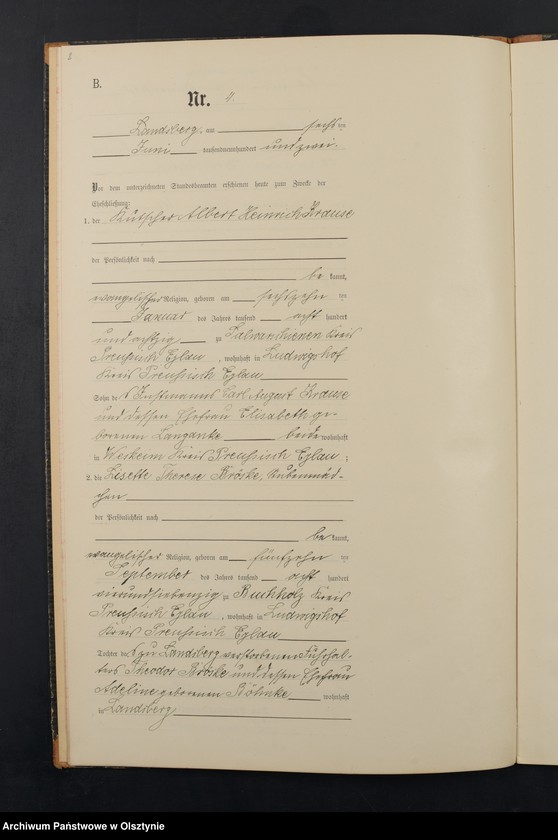 B.
Nr. 4.
Landsberg, am sechsten
Juni tausendneunhundert und zwei.
Vor dem unterzeichneten Standesbeamten erschienen heute zum Zwecke der
Eheschließung:
1. der Kutscher Albert Heinrich Krause
der Persönlichkeit nach
be kannt,
evangelischer Religion, geboren am sechszehn ten
Januar des Jahres tausend acht hundert
und achtzig zu Kreis
Preußisch Eylau, wohnhaft in Ludwigshof
Kreis Preußisch Eylau
Sohn des Instmanns Carl August Krause
und dessen Ehefrau Elisabeth ge-
borenen Langanke beide wohnhaft
in Kreis Preußisch Eylau;
2. die Lisette Therese Bröske, Stubenmäd-
chen
der Persönlichkeit nach
be kannt,
evangelischer Religion, geboren am fünfzehn ten
September des Jahres tausend acht hundert
vierundsiebenzig zu Buchholz Kreis
Preußisch Eylau, wohnhaft in Ludwigshof
Kreis Preußisch Eylau
Tochter des zu Landsberg verstorbenen Fuhrhal-
ters Theodor Bröske und dessen Ehefrau
Adeline geborenen Böhnke wohnhaft
in Landsberg
Archiwum Państwowe w Olsztynie